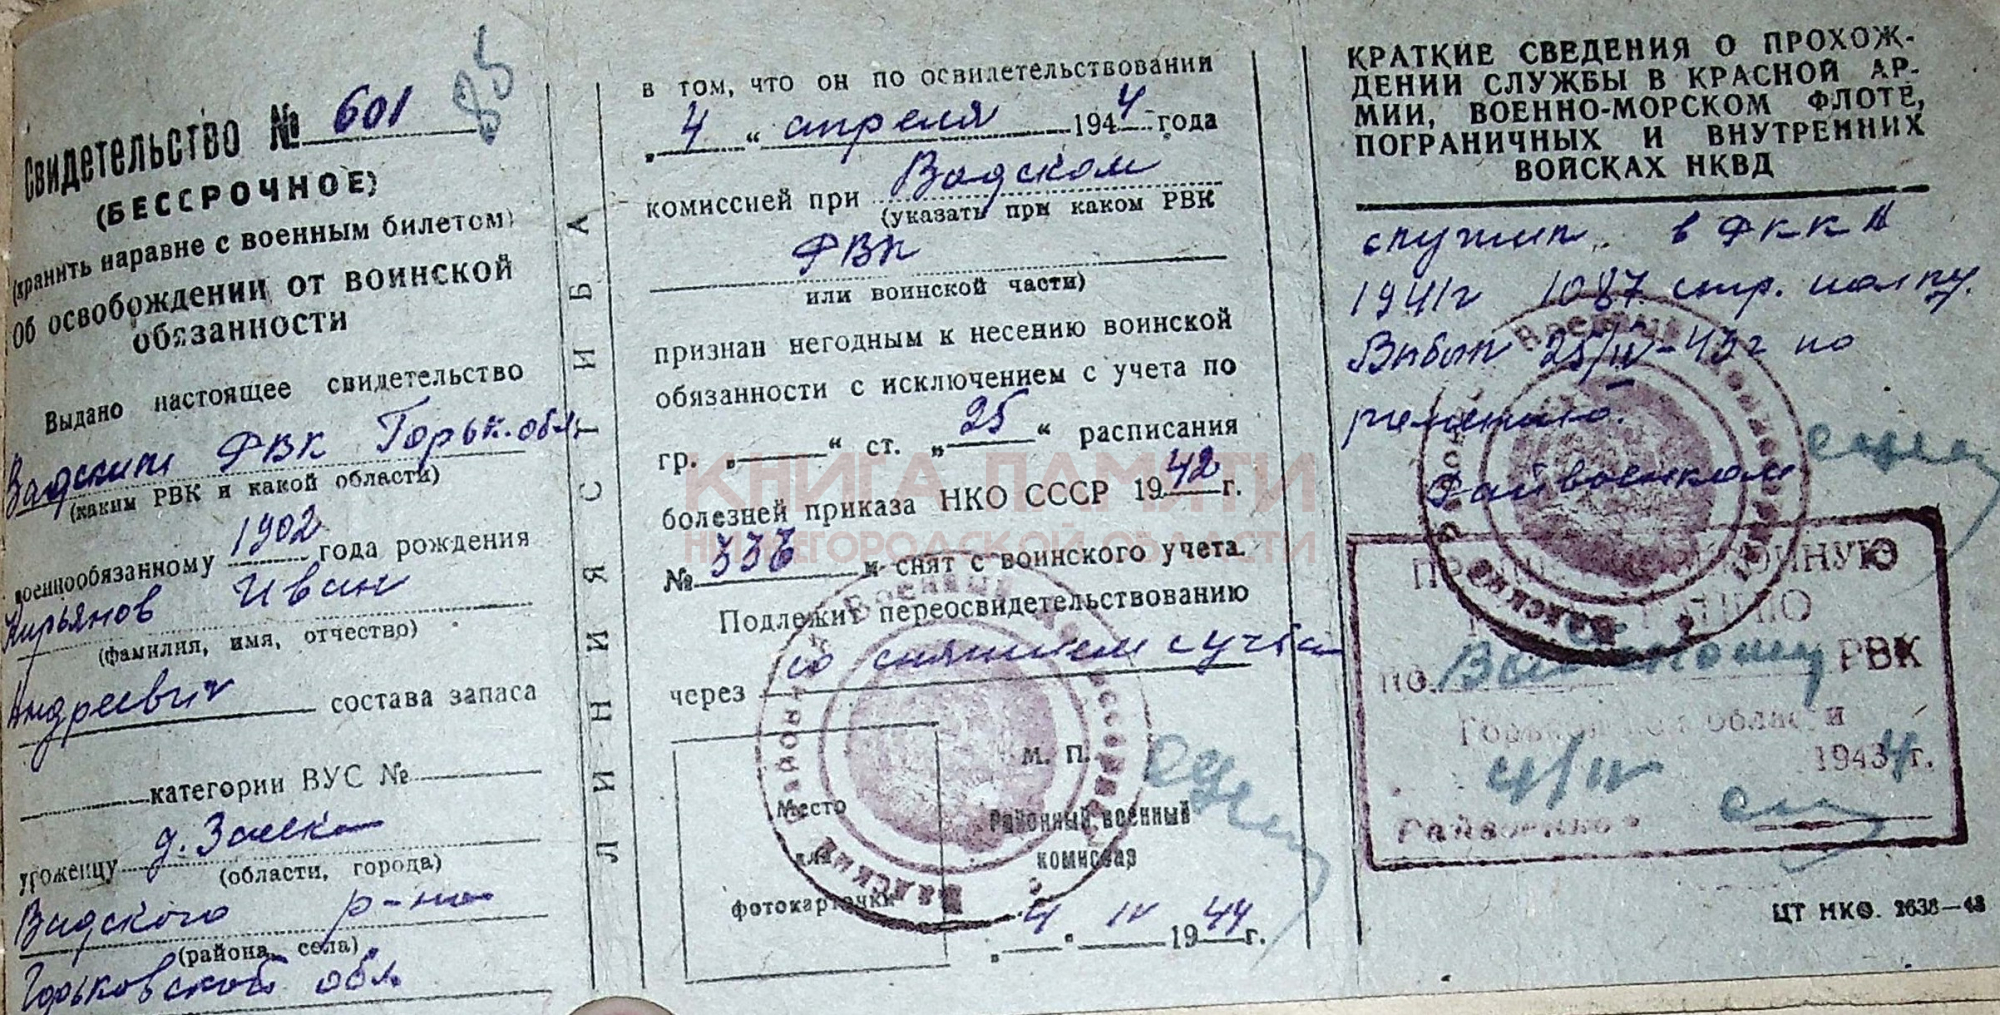 Свидетельство № 601
85
(БЕССРОЧНОЕ)
(хранить наравне с военным билетом)
Об освобождении от воинской
обязанности
Выдано настоящее свидетельство
Вадским РВК Горьк. обл.
(каким РВК и какой области)
военнообязанному 1902 года рождения
Кирьянов Иван
(фамилия, имя, отчество)
Андреевич состава запаса
категории ВУС №
уроженцу д. Заека
(области, города)
Вадского р-на
(района, села)
Горьковской обл.
ЛИНИЯ СГИБА
в том, что он по освидетельствовании
„4“ апреля 1944 года
комиссией при Вадском
(указать при каком РВК
РВК
или воинской части)
признан негодным к несению воинской
обязанности с исключением с учета по
гр. „ “ ст. „25“ расписания
болезней приказа НКО СССР 1942 г.
№ 336 и снят с воинского учета.
Подлежит переосвидетельствованию
через со снятием с учета
М. П.
Место
для
фотокарточки
Районный военный
комиссар
„4“ IV 1944 г.
Вадский Районный Военный Комиссариат
КРАТКИЕ СВЕДЕНИЯ О ПРОХОЖ-
ДЕНИИ СЛУЖБЫ В КРАСНОЙ АР-
МИИ, ВОЕННО-МОРСКОМ ФЛОТЕ,
ПОГРАНИЧНЫХ И ВНУТРЕННИХ
ВОЙСКАХ НКВД
служил в РККА
1941г 1087 стр. полку.
Выбыл 25/IV-43г по
ранению.
Райвоенком
Вадский Районный Военный Комиссариат
ПО Вадскому РВК
Горьковской области
4/IV 19434 г.
Райвоенком
ЦТ НКО. 2638—43
КНИГА ПАМЯТИ
НИЖЕГОРОДСКОЙ ОБЛАСТИ